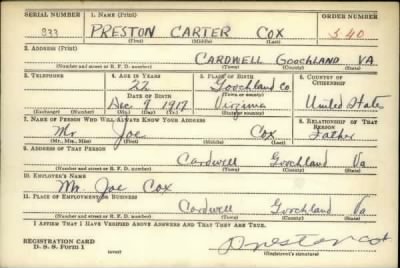 SERIAL NUMBER 1. NAME (Print) ORDER NUMBER
233 PRESTON CARTER COX 540
(First) (Middle) (Last)
2. ADDRESS (Print)
CARDWELL GOOCHLAND VA
(Number and street or R. F. D. number) (Town) (County) (State)
3. TELEPHONE 4. AGE IN YEARS 5. PLACE OF BIRTH 6. COUNTRY OF CITIZENSHIP
22 Goochland Co
DATE OF BIRTH (Town or county)
Dec 9 1917 Virginia United State
(Exchange) (Number) (Mo.) (Day) (Yr.) (State or country)
7. NAME OF PERSON WHO WILL ALWAYS KNOW YOUR ADDRESS 8. RELATIONSHIP OF THAT PERSON
Mr. Joe Cox Father
(Mr., Mrs., Miss) (First) (Middle) (Last)
9. ADDRESS OF THAT PERSON
Cardwell Goochland Va
(Number and street or R. F. D. number) (Town) (County) (State)
10. EMPLOYER'S NAME
Mr. Joe Cox
11. PLACE OF EMPLOYMENT OR BUSINESS
Cardwell Goochland Va
(Number and street or R. F. D. number) (Town) (County) (State)
I AFFIRM THAT I HAVE VERIFIED ABOVE ANSWERS AND THAT THEY ARE TRUE.
REGISTRATION CARD
D. S. S. FORM 1 (over) Preston Cox
(Registrant's signature)